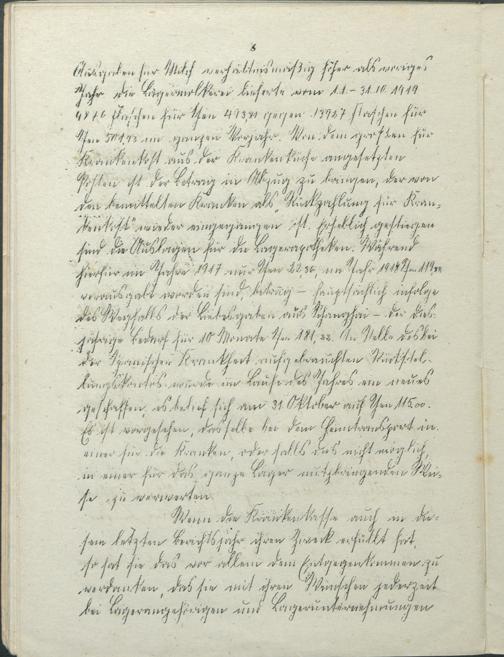 8
Ausgaben für Milch verhältnismäßig höher als voriges
Jahr die Lagermolkerei lieferte vom 1.1 – 31.10.1919
Flaschen für Yen gegen 13927 Flaschen für
Yen im ganzen Vorjahr. Von dem großen für
Krankenkost aus der Krankenküche angesetzten
Posten ist der Betrag in Abzug zu bringen, der von
den bemittelten Kranken als "Rückzahlung für Kran-
kenkost" wieder eingegangen ist. Erheblich gestiegen
sind die Auslagen für die Lagerapotheken. Während
hierfür im Jahre 1917 nur Yen im Jahr 1918 Yen
verausgabt worden sind, betrug – hauptsächlich infolge
des Wegfalls der Liebesgaben aus Schanghai – der dies-
jährige Bedarf für 10 Monate Yen 181,22. An Stelle des bei
der Spanischen Krankheit aufgebrauchten Rückstel-
lungskontos wurde im Laufe des Jahres ein neues
geschaffen, es belief sich am 31 Oktober auf Yen
Es ist vorgesehen, dasselbe bei dem Heimtransport in
einer für die Kranken, oder falls das nicht möglich,
in einer für das ganze Lager nutzbringenden Wei-
se zu verwerten.
Wenn die Krankenkasse auch in die-
sem letzten Berichtsjahr ihren Zweck erfüllt hat,
so hat sie das vor allem dem Entgegenkommen zu
verdanken, das sie mit ihren Wünschen jederzeit
bei Lagerangehörigen und Lagerunternehmungen